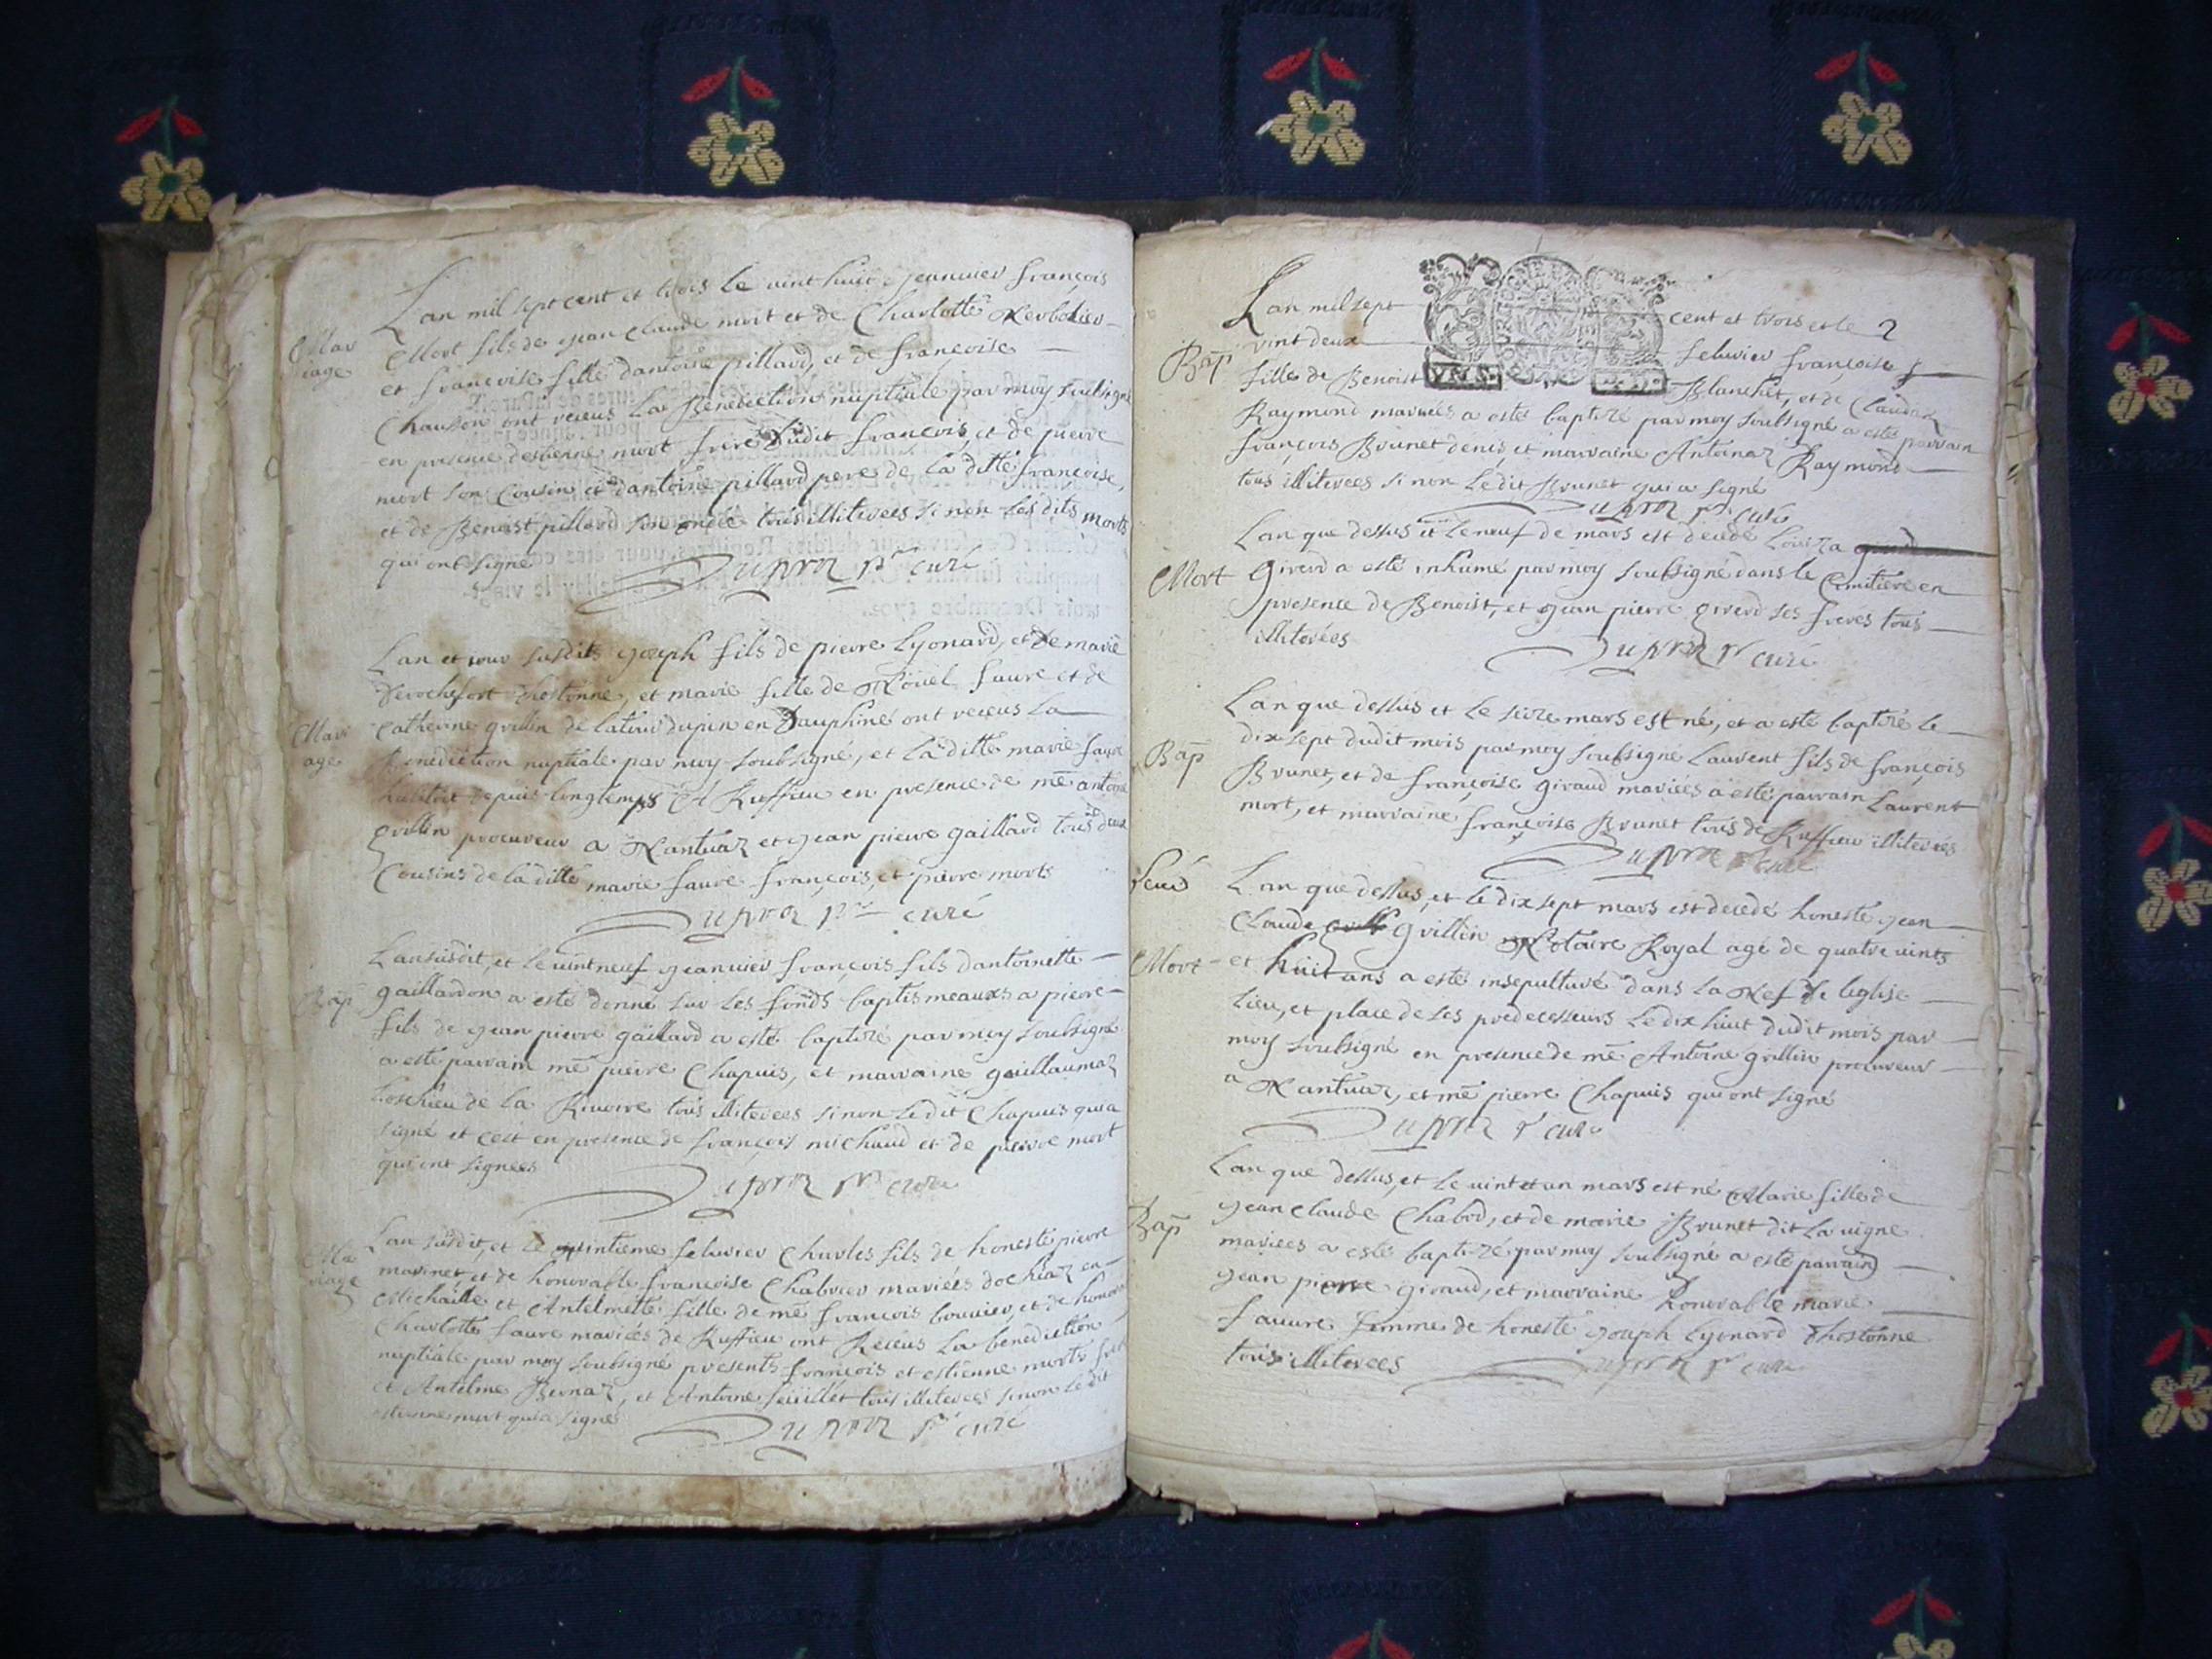 Lan mil sept cent et trois le vint huit jeanvier françois
Mar
iage
Mort fils de jean claude mort et de Charlotte
et françoise fille dantoine pillard, et de françoise
Chausson ont receus la Benediction nuptiale par moy soubsigné
en presence destienne mort frere dudit françois, et de pierre
mort son Cousin et dantoine pillard pere de la ditte françoise,
et de Benoist pillard son oncle tous illiterees si non les dits morts
qui ont signé
Dupraz ptre curé
Lan et jour susdits joseph fils de pierre Lyonard, et de marie
derochefort dhostonne, et marie fille de Noüel faure et de
Mari
age
Catherine grillin de latour dupin en Dauphiné ont receus la
Benediction nuptiale par moy soubsigné, et la ditte marie faure
habitoit depuis longtemps a Ruffieu en presence de me antoine
grillin procureur a Nantuaz et jean pierre gaillard tous deux
Cousins de la ditte marie faure françois, et pierre morts
Dupraz ptre curé
Lan susdit, et le vint neuf jeanvier françois fils dantoinette
Bap
gaillardon a esté donné sur les fonds baptismeaux a pierre
fils de jean pierre gaillard a esté baptizé par moy soubsigné
a esté parrain me pierre Chapuis, et marraine guillaumaz
de la Rivoire tous illiterees sinon ledit Chapuis qui a
signé et cest en presence de françois michaud et de pierre mort
qui ont signees
Dupraz ptre curé
Lan susdit, et le quintieme febvrier Charles fils de honeste pierre
Ma
riage
marinet et de honorable françoise Chabrier mariées dochiaz en
Michaille et Antelmette fille de me françois bouvier, et de honor
Charlotte faure mariées de Ruffieu ont Receus la benediction
nuptiale par moy soubsigné presents françois et estienne morts
et Antelme Bernaz, et Antoine feüillet tous illiterees sinon ledit
estienne mort qui a signé
Dupraz ptre curé
Lan mil sept cent et trois et le 2
vint deux febvrier françoise
Bap
fille de Benoist Blanchet, et de Claudaz
Raymond mariées a estée baptizé par moy soubsigné a esté parrain
françois Brunet denis et marraine Antoinaz Raymond
tous illiterees si non Ledit Brunet qui a signé
Dupraz ptre curé
Lan que dessus et le neuf de mars est decedé Louiza
Mort
Girerd a esté inhumé par moy soubsigné dans le Cimitiere en
presence de Benoist, et jean pierre girerd ses freres tous
illiterées
Dupraz ptre curé
Lan que dessus et le seize mars est né, et a esté baptizé le
dix sept dudit mois par moy soubsigné Laurent fils de françois
Bap
Brunet, et de françoise giraud mariées a esté parrain Laurent
mort, et marraine françoise Brunet tous de Ruffieu illiterées
Dupraz ptre curé
Lan que dessus, et le dix sept mars est decedé honeste jean
Claude grillin Notaire Royal agé de quatre vints
Mort
et huit ans a esté insepulturé dans la Nef de leglise
Lieu, et place de ses predecesseurs Le dix huit dudit mois par
moy soubsigné en presence de me Antoine grillin procureur
a Nantuaz, et me pierre Chapuis qui ont signé
Dupraz ptre curé
Lan que dessus, et le vint et un mars est né Marie fille de
Bap
jean Claude Chabod, et de marie Brunet dit la vigne
mariees a esté baptizé par moy soubsigné a esté parrain
jean pierre giraud, et marraine honorable marie
fauure femme de honeste joseph Lyonard dhostonne
tous illiterees
Dupraz ptre curé